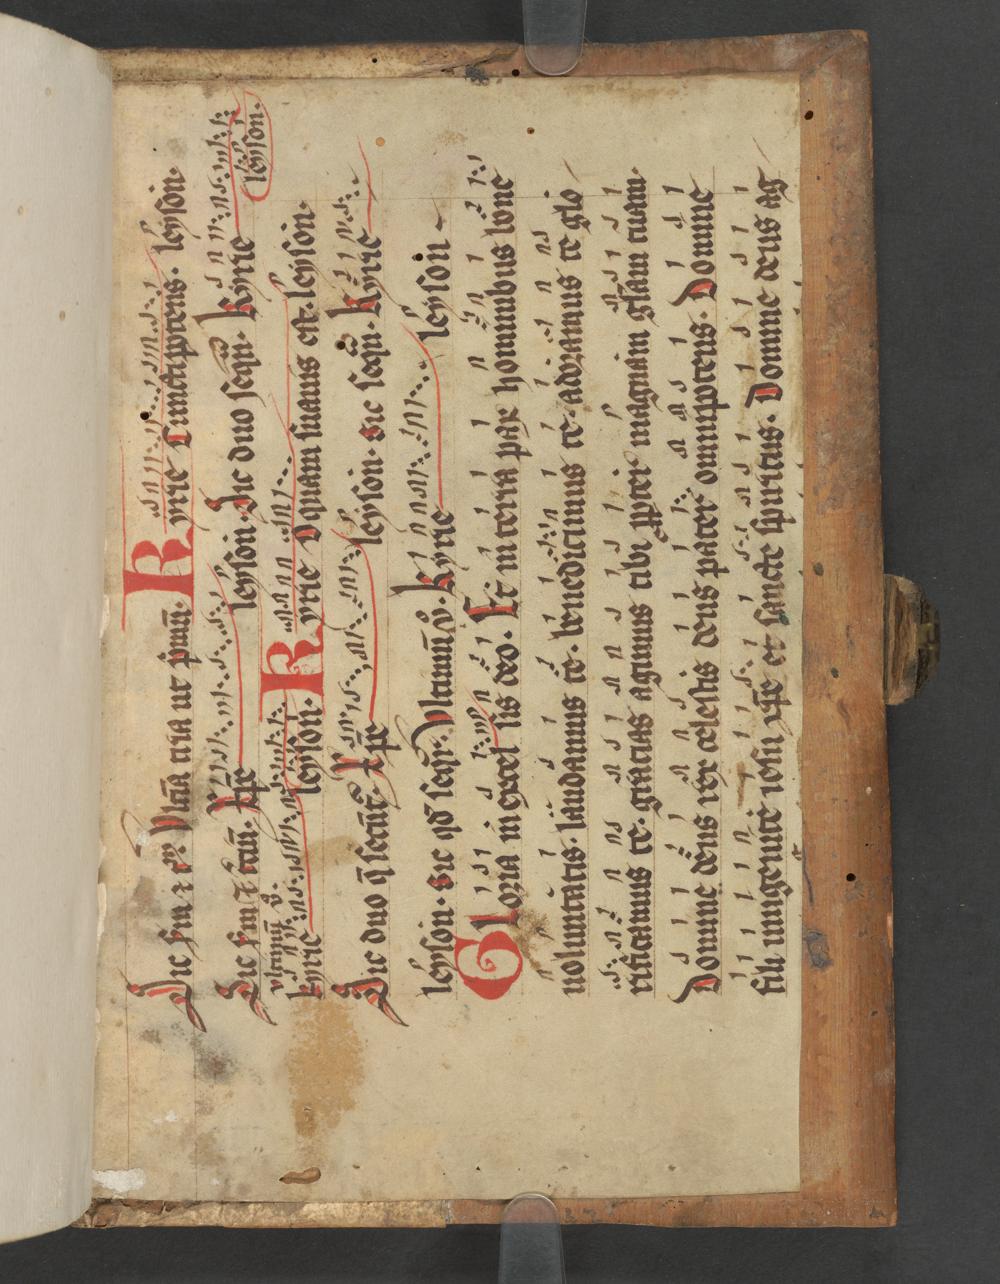 Sic ſcd̄m ⁊ ter̄. Vltīa tria ut pm̄ū. Kyrie Cunctipotens. leyſon.
Sic ſcd̄m ⁊ terciū. Xp̄e leyſon. Sic duo ſeqū. Kyrie leyſon.
vltimū
kyrie leyſon. Kyrie O quam ſuauis eſt. leyſon.
Sic duo q̄ ſecūt̄. Xp̄e leyſon. Sic ſeqū. Kyrie
leyſon. Sic qd̄ ſequr̄. Vltimū v̊ kyrie leyſon
Gloria in excel ſis deo. Et in terra pax hominibus bone
uoluntatis. laudamus te. benedicimus te. adoramus te. glo
rificamus te. gracias agimus tibi ꝓpter magnam gl̄am tuam.
Domine deus rex celeſtis deus pater omnipotens. Domine
fili unigenite ieſu xp̄e et ſancte ſpiritus. Domine deus ag